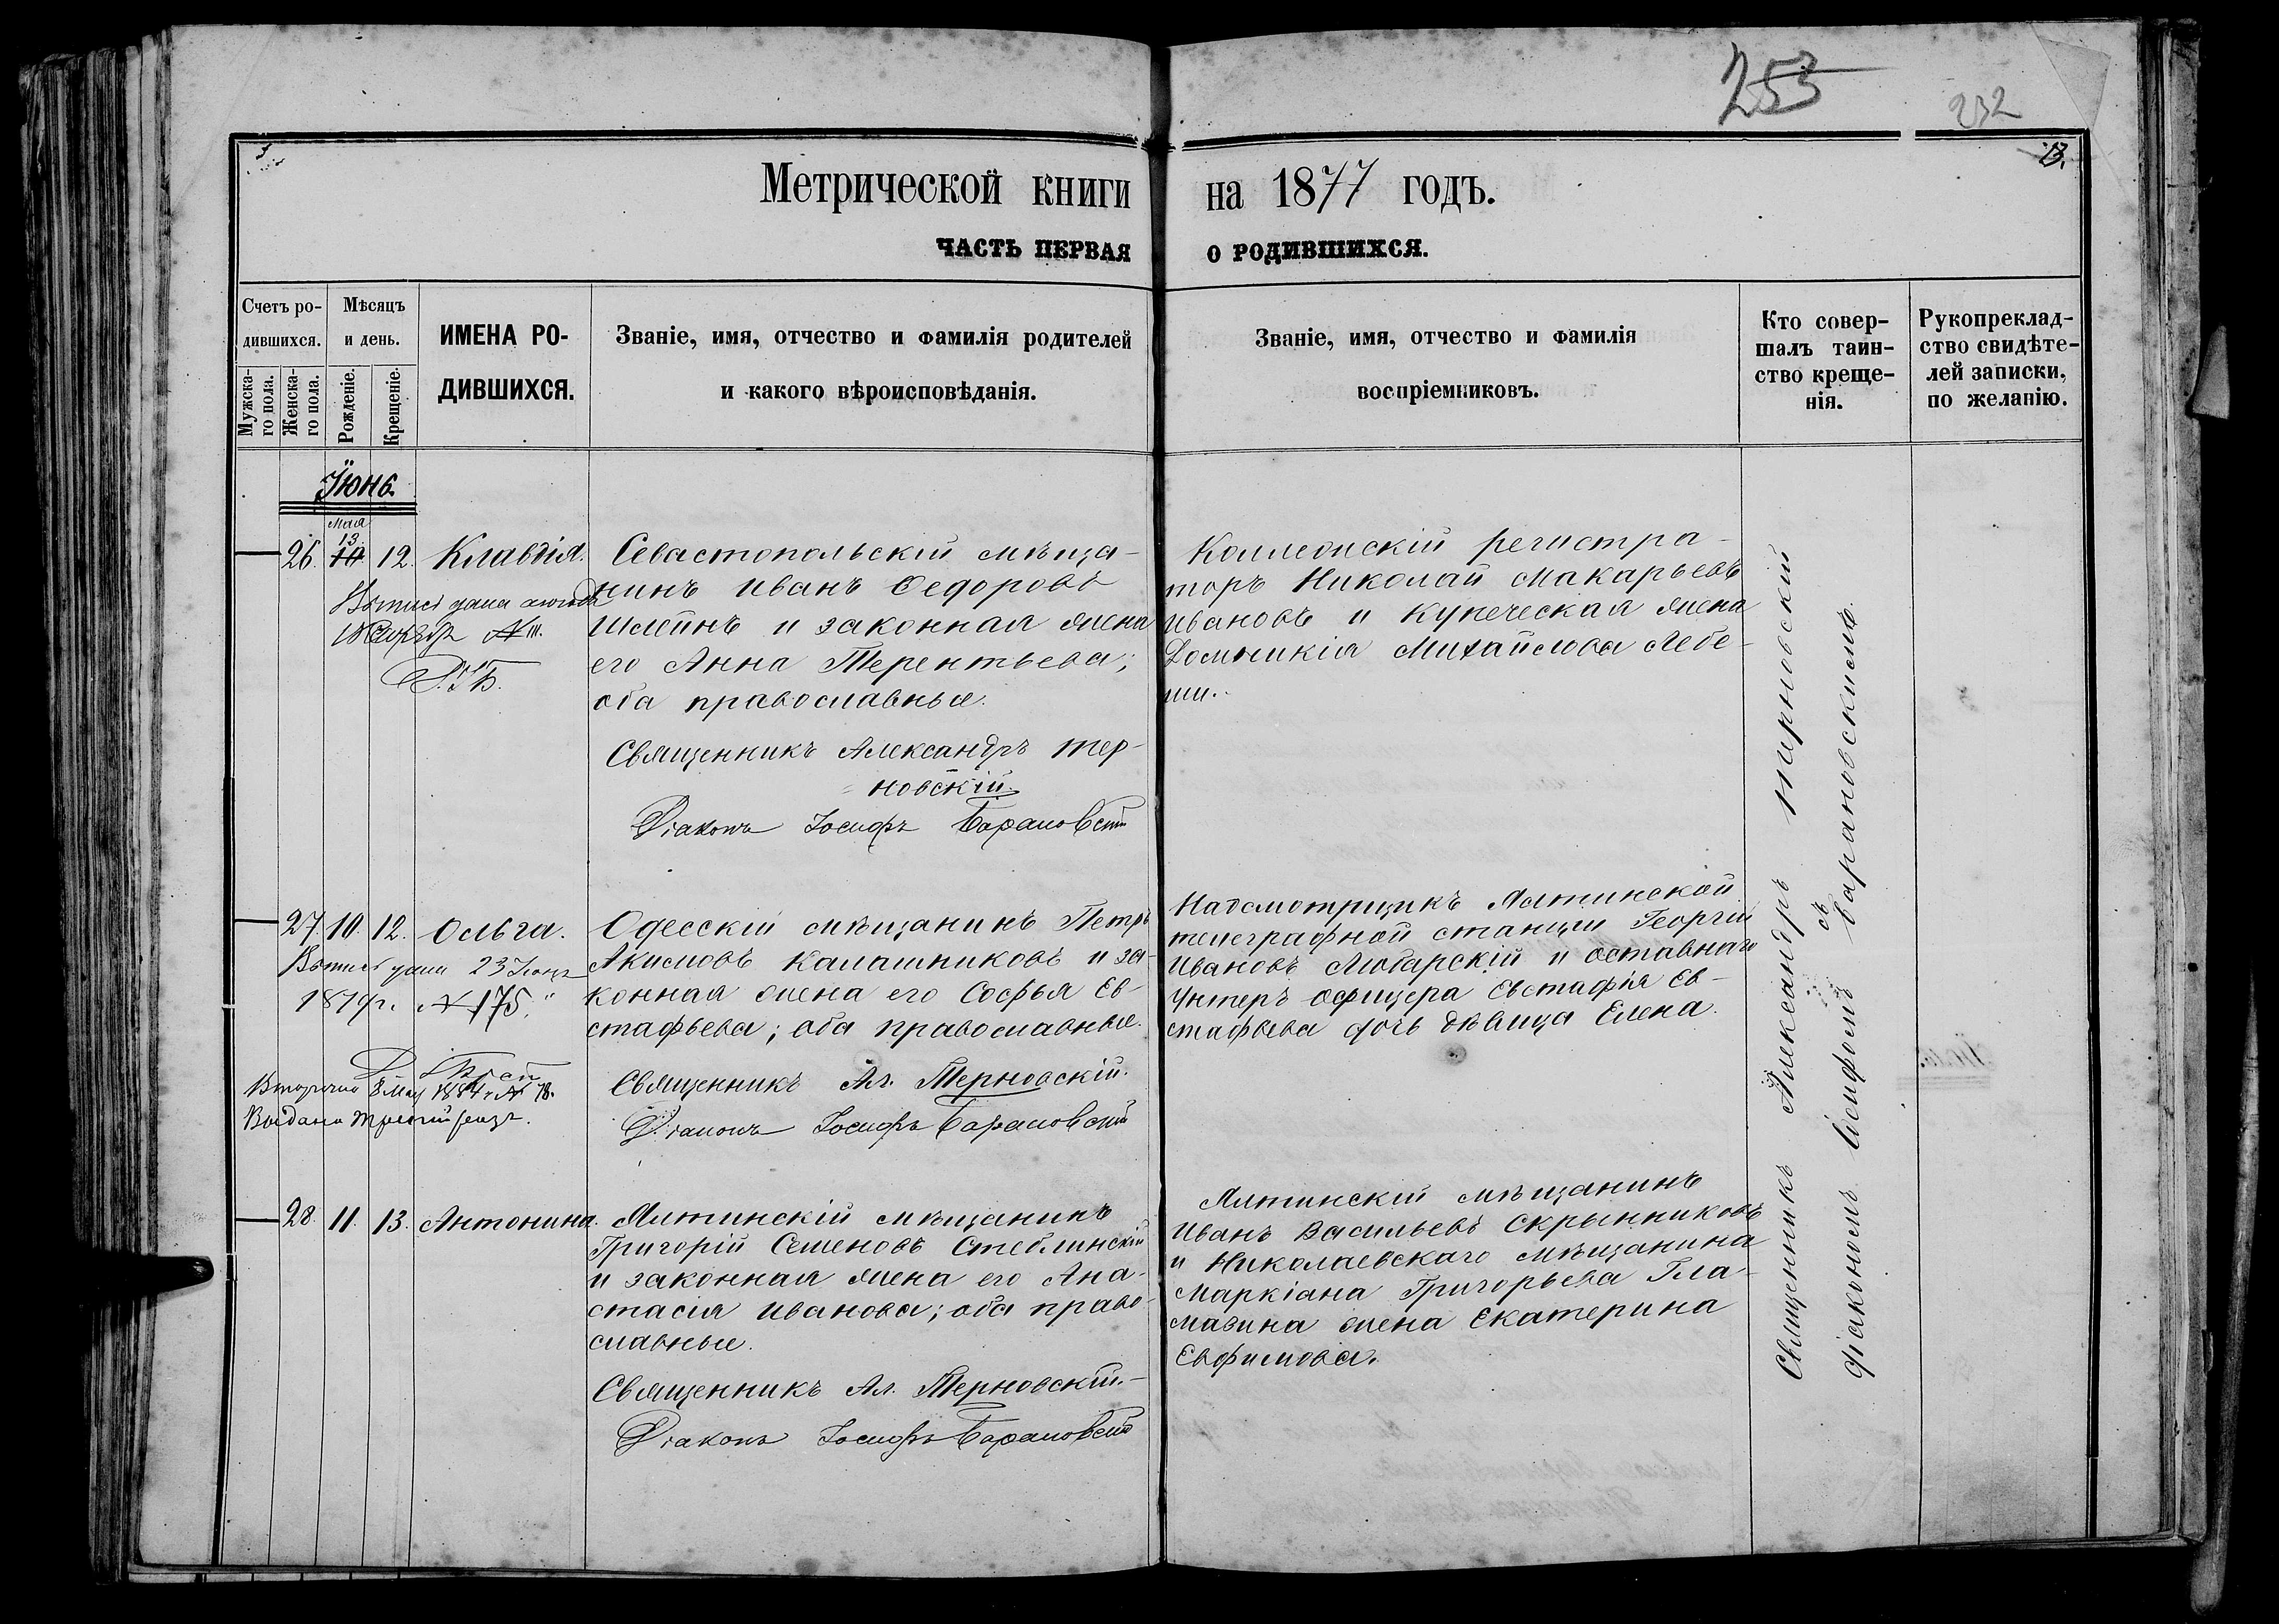 253
232
13.
Метрической книги на 1877 годъ.
ЧАСТЬ ПЕРВАЯ О РОДИВШИХСЯ.
Счетъ ро-
дившихся.
Мужска-
го пола.
Женска-
го пола.
Мѣсяцъ
и день.
Рожденіе.
Крещеніе.
ИМЕНА РО-
ДИВШИХСЯ.
Званіе, имя, отчество и фамилія родителей
и какого вѣроисповѣданія.
Званіе, имя, отчество и фамилія
воспріемниковъ.
Кто совер-
шалъ таин-
ство креще-
нія.
Рукоприклад-
ство свидѣте-
лей записки,
по желанію.
Іюнь
мая
13
26. 10 12. Клавдія.
Севастопольскій мѣща-
нинъ Иванъ Федоровъ
Шлейнъ и законная жена
его Анна Терентьева;
оба православные.
Священникъ Александръ Тер-
новскій.
Діаконъ Іосифъ Барановскій
Коллежскій регистра-
торъ Николай Макарьевъ
Ивановъ и купеческая жена
Домникія Михайлова Лебе-
ши.
27. 10. 12. Ольга.
Выпись дана 23 Іюня
1879 г. № 175.
Вторично 8 мая 1884 г. № 78.
Выдана третій разъ.
Одесскій мѣщанинъ Петръ
Акимовъ Калашниковъ и за-
конная жена его Софья Ев-
стафьева; оба православные.
Священникъ Ал. Терновскій.
Діаконъ Іосифъ Барановскій
Надсмотрщикъ Ялтинской
телеграфной станціи Георгій
Ивановъ Любарскій и отставнаго
Унтеръ офицера Евстафія Ев-
стафьева дочь дѣвица Елена.
28. 11. 13. Антонина.
Ялтинскій мѣщанинъ
Григорій Семеновъ Стеблинскій
и законная жена его Ана-
стасія Иванова; оба право-
славные.
Священникъ Ал. Терновскій.
Діаконъ Іосифъ Барановскій
Ялтинскій мѣщанинъ
Иванъ Васильевъ Скрынниковъ
и Николаевскаго мѣщанина
Маркіана Григорьева Гла-
мазина жена Екатерина
Евфимова.
Священникъ Александръ Терновскій
съ
діакономъ Іосифомъ Барановскимъ.